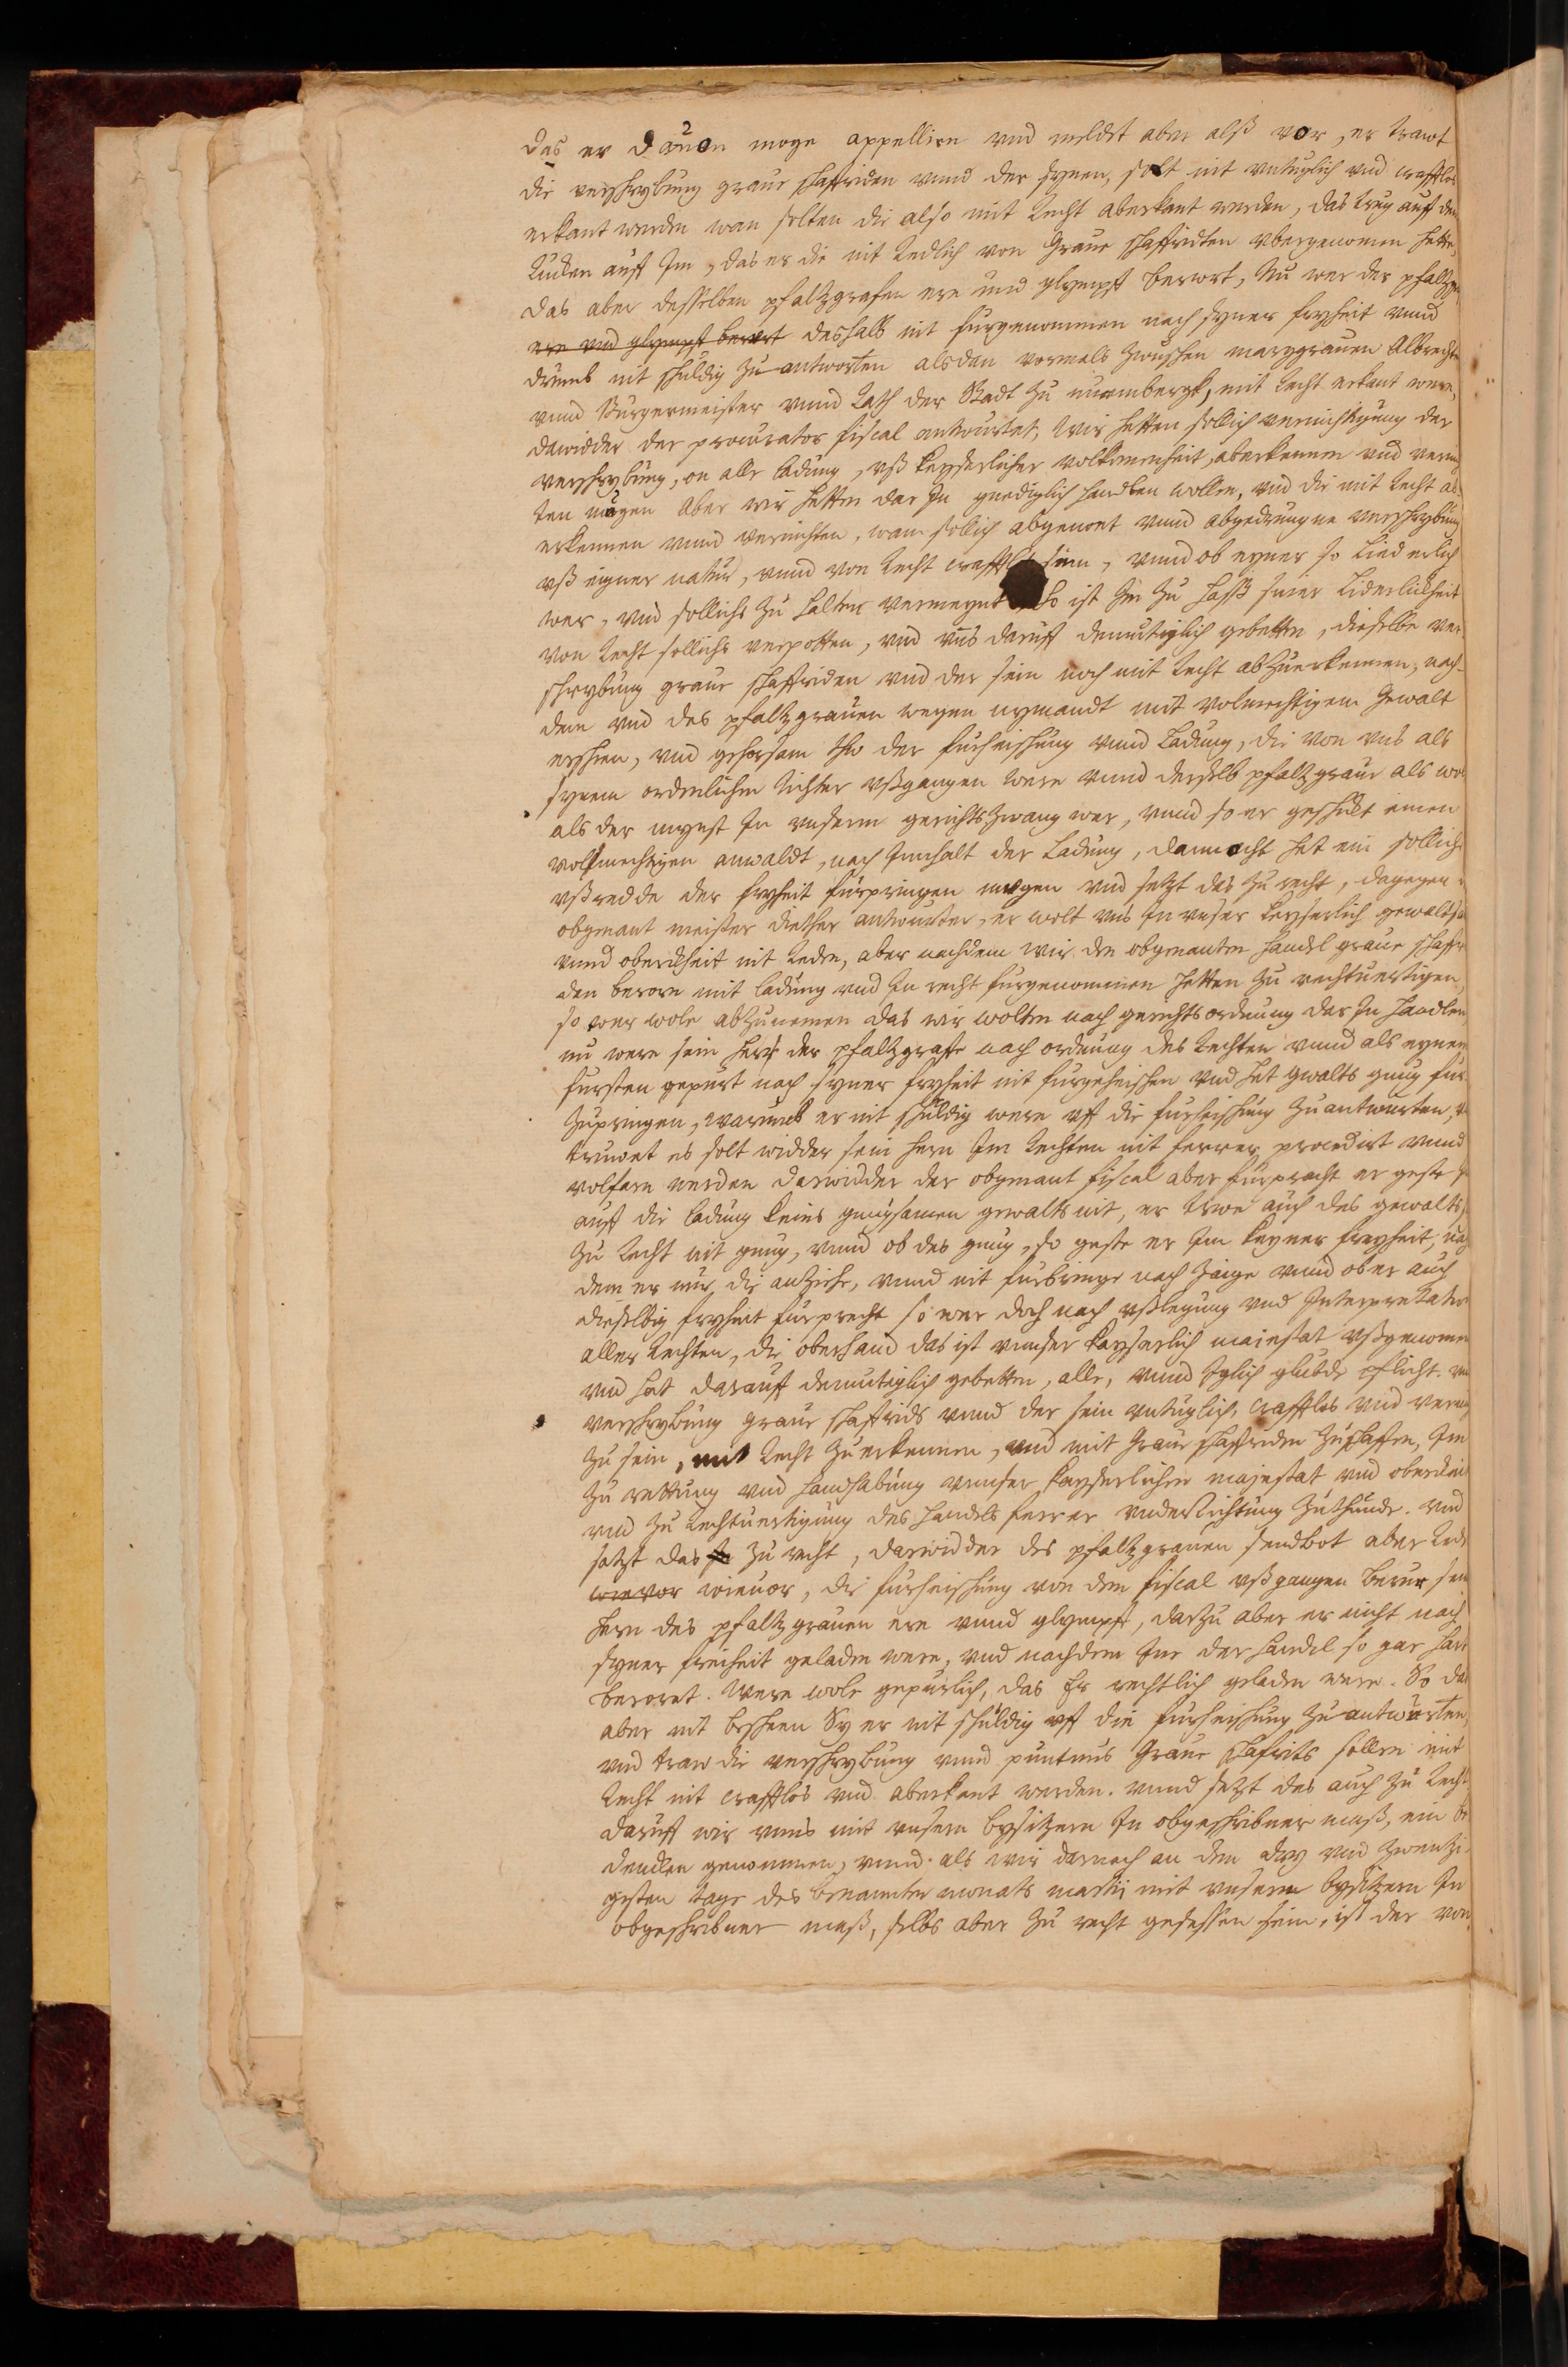 das er dauon moge appellirn vnd meldet aber alß vor, er trawt
die verschrybung graue schaffriden vnnd der synen, solt nit vntuglich vnd crafftlos
erkant werden wan solten die also mit Recht aberkant werden, das trug auff dem
Rucken auff Im, das er die nit Redlich von Graue schaffridten vbergenomen hette,
das aber desselben pfaltzgrafen ere vnd glympff berort, Nu wer der pfaltzgr
ere vnd glympff berort deshalb nit furgenommen nach syner fryheit vnnd
drumb nit schuldig zu antworten als dan vormals zwuschen marggrauen Albrechten
vnnd Burgermeister vnnd Rath der Stadt zu nurmbergk, mit Recht erkant were,
dawidder der procurator fiscal antwurtet, Wir hetten sollich vernichtigung der
verschrybung, on alle ladung, vß keyserlicher volkomenheit, aberkennen vnd vernich
ten mugen Aber wir hetten dar In gnediglich handlen wollen, vnd die mit Recht ab
erkennen vnnd vernichten, wann sollich abgenöt vnnd abgedrungne verschrybung
vß eigner natur, vnnd von Recht crafftlos sinn, vnnd ob eyner so Liederlich
wer, vnd sollichs zu halten vermeynt so ist Im zu haß siner Liderlickheit
von Recht sollichs verpotten, vnd vns daruff demutiglich gebetten, dieselbe ver
schrybung graue schaffriden vnd der sein noch mit Recht abzuerkennen, nach-
dem vnd des pfaltzgrauen wegen nymandt mit volmechtigem Gewalt
erschein, vnd gehorsam thw der furheischung vnnd Ladung, die von vns als
synem ordenlichen Richter vßgangen were vnnd derselb pfaltzgraue als wol
als der mynst In vnserm gerichts zwang wer, vnnd so er geschickt einen
volmechtigen anwaldt, nach Innhalt der Ladung, dannocht het ein solliche
vßredde der fryheit furpringen mogen vnd setzt das zu recht, dagegen
obgenant meister diether antwurtet, er wolt vns In vnser keyserlich gewaltsa
vnnd oberckheit nit Reden, aber nachdem wir den obgenanten handel graue schaffri
den berorn mit ladung vnd In recht furgenommen hetten zu rechtuertigen,
so wer wole abzunemen das wir wolten nach gerichts ordnung dar In handlen
nu were sein herr der pfaltzgraffe nach ordnung des Rechten vnnd als eynem
fursten gepurt nach syner fryheit nit furgeheischen vnd het gwalts gnug fur
zupringen, warumb er nit schuldig were vff die furheischung zu antwurten,
truwet es solt widder sein hern Im Rechten nit ferrer procedirt vnnd
volfarn werden darwidder der obgenant fiscal aber furpracht er geste
auff die ladung keins gnugsamen gewalts nit, er trwe auch des gewalts
zu Recht nit gnug, vnnd ob des gnug, so geste er Im keyner freyheit, nach
dem er nur die anziehe, vnnd nit furbringe noch zaige vnnd ob er auch
dieselbig fryheit furprecht so wer doch nach vßlegung vnd Interpretation
aller Rechten, die oberhand das ist vnnser kayserlich maiestat vßgenomen
vnd hat darauff demutiglich gebetten, alle, vnnd Iglich glubde pflicht. vnd
verschrybung graue schaffrids vnnd der sein vntuglich, crafftlos vnd vernich
zu sein, mit Recht zu erkennen, vnd mit Graue schaffriden zu schaffen, Im
zu rettung vnd handhabung vnnser kayserlichen majestat vnd oberckeit
vnd zu Rechtuertigung des handels ferrer vnderrichtung zuthunde. vnd
satzt das zu recht, darwidder des pfaltzgrauen sendbot aber Redt
wievor wieuor, die furheischung von dem fiscal vßgangen berur sein
hern des pfaltzgrauen ere vnnd glympff, darzu aber er nicht nach
syner freiheit geladen were, vnd nachdem Ine der handel so gar hart
beroret. Were wole gepurlich, das Er rechtlich geladen were. So das
aber nit beschehen Sy er nit schuldig vff die furheischung zu antwurten,
vnd traw die verschrybung vnnd puntnus Graue schafrits sollen mit
Recht nit crafftlos vnd aberkant werden. vnnd setzt das auch zu Recht
daruff wir vnns mit vnsern bysitzern In obgeschribner maß, ein be
dencken genommen, vnnd als wir darnach an dem dry vnd zwentzi
gesten tage des benannten monats martij mit vnseren bysitzern In
obgeschribner maß, selbs aber zu recht gesessen sein, ist der von